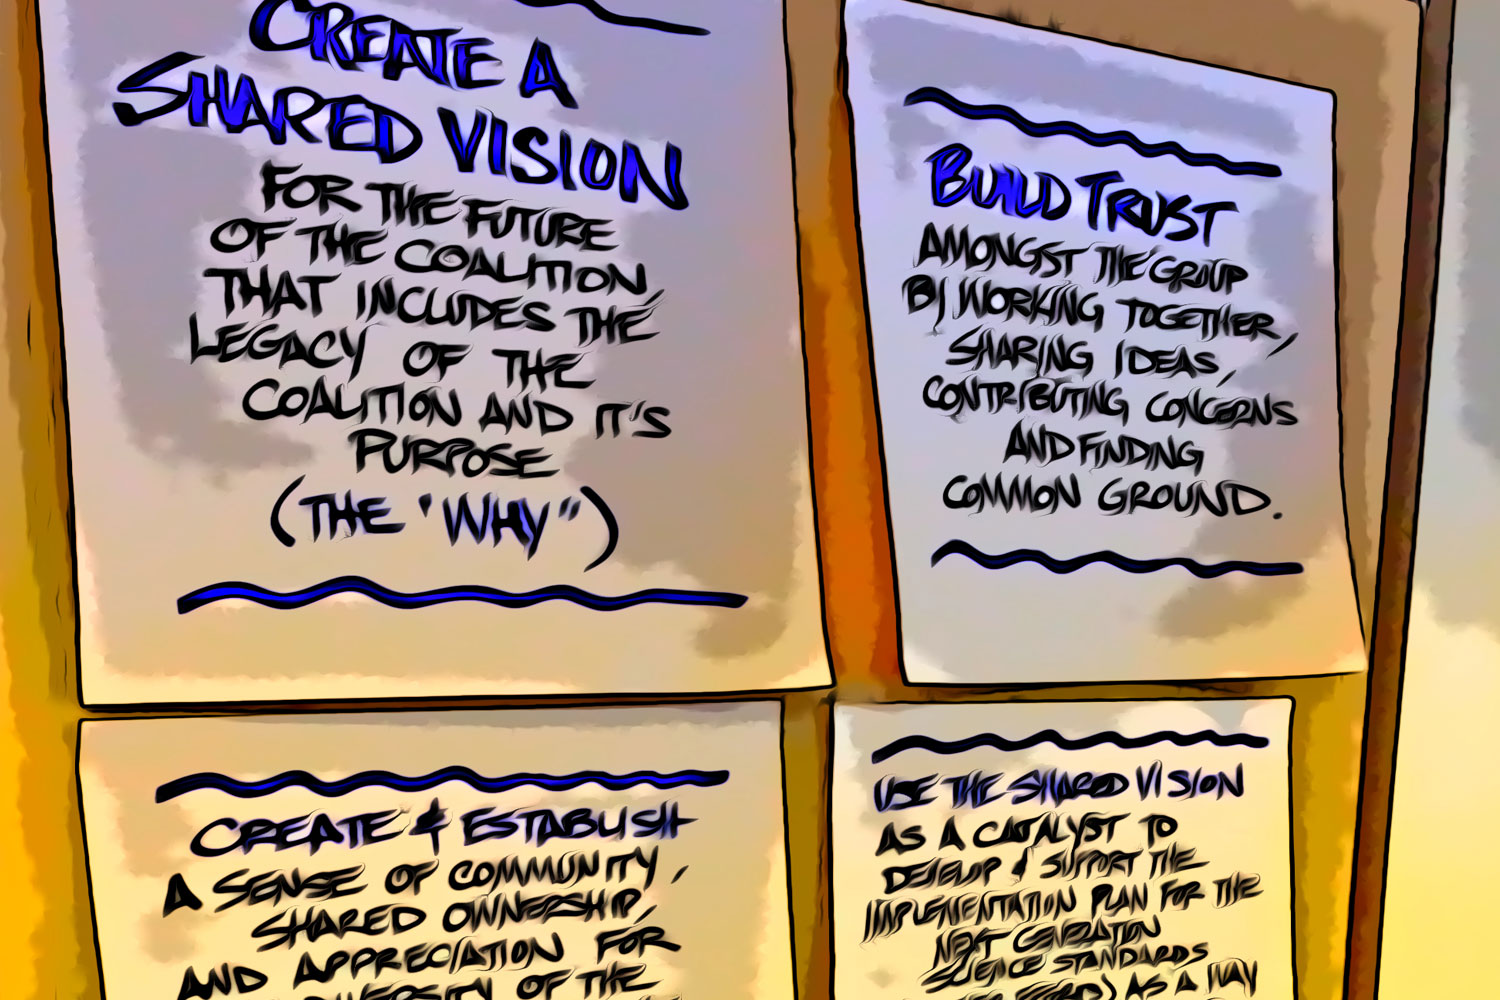 CREATE A
SHARED VISION
FOR THE FUTURE
OF THE COALITION,
THAT INCLUDES THE
LEGACY OF THE
COALITION AND IT'S
PURPOSE
(THE "WHY")
BUILD TRUST
AMONGST THE GROUP
BY WORKING TOGETHER,
SHARING IDEAS,
CONTRIBUTING CONCERNS
AND FINDING
COMMON GROUND.
CREATE & ESTABLISH
A SENSE OF COMMUNITY,
SHARED OWNERSHIP,
AND APPRECIATION FOR
DIVERSITY OF THE
USE THE SHARED VISION
AS A CATALYST TO
DEVELOP & SUPPORT THE
IMPLEMENTATION PLAN FOR THE
NEXT GENERATION
SCIENCE STANDARDS
AS A WAY